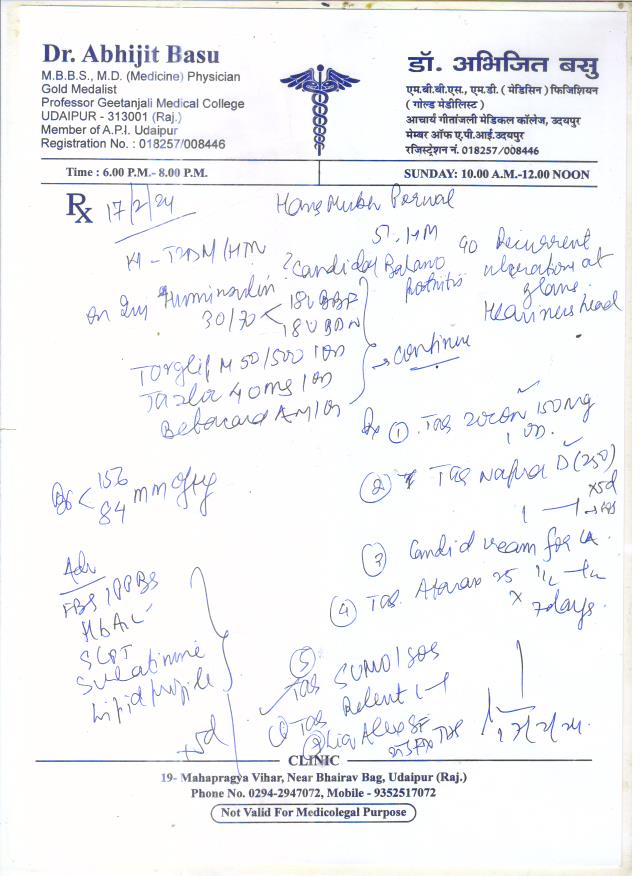 Dr. Abhijit Basu
M.B.B.S., M.D. (Medicine) Physician
Gold Medalist
Professor Geetanjali Medical College
UDAIPUR - 313001 (Raj.)
Member of A.P.I. Udaipur
Registration No. : 018257/008446
डॉ. अभिजित बसु
एम.बी.बी.एस., एम.डी. ( मेडिसिन ) फिजिशियन
( गोल्ड मेडीलिस्ट )
आचार्य गीतांजली मेडिकल कॉलेज, उदयपुर
मेम्बर ऑफ ए.पी.आई.उदयपुर
रजिस्ट्रेशन नं. 018257/008446
Time : 6.00 P.M.- 8.00 P.M.
SUNDAY: 10.00 A.M.-12.00 NOON
Rx 17/2/24
T2DM/HTN
? Candidal Balano
Recurrent
ulceration at
30/70 < 18U BBF
18U BDN
M 50/500 1 OD
40mg 1 OD
AM 1 OD
→ continue
Rx ① Tab Zocon 150mg
1 OD.
② Tab Napra D (250)
x5d
③ Candid cream for LA
④ Tab. Atarax 25 1/2 - 1/2
x 7days.
< 156
84 mmofHg
Adv
FBS/PPBS
HbA1c
SGPT
S creatinine
Lipid profile
⑤
Tab SUMO 1 SOS
① Tab Relent 1-1
② Liq Alex SF
TDS
x5d
CLINIC
19- Mahapragya Vihar, Near Bhairav Bag, Udaipur (Raj.)
Phone No. 0294-2947072, Mobile - 9352517072
Not Valid For Medicolegal Purpose